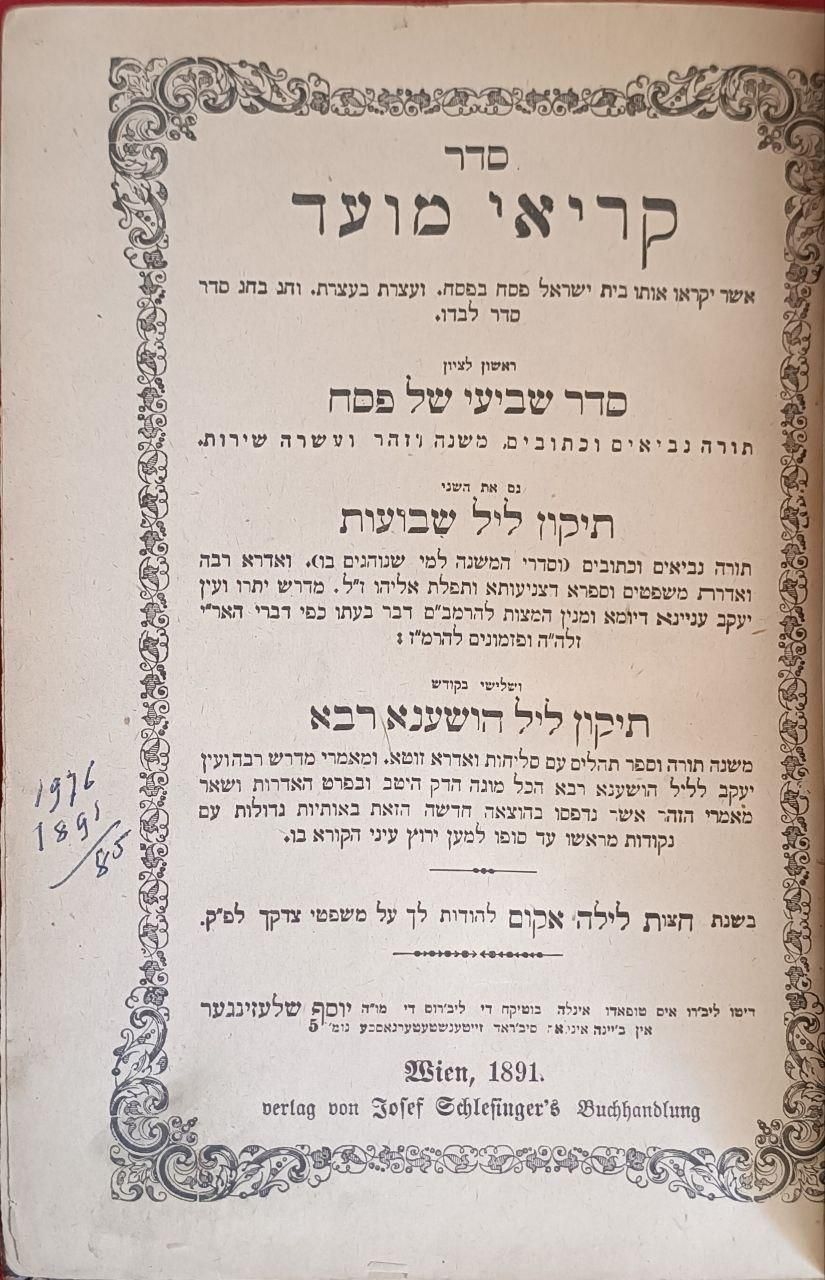 סדר
קריאי מועד
אשר יקראו אותו בית ישראל פסח בפסח. ועצרת בעצרת. וחג בחג סדר
סדר לבדו.
ראשון לציון
סדר שביעי של פסח
תורה נביאים וכתובים, משנה וזהר ועשרה שירות.
גם את השני
תיקון ליל שבועות
תורה נביאים וכתובים (וסדרי המשנה למי שנוהגים בו). ואדרא רבה
ואדרת משפטים וספרא דצניעותא ותפלת אליהו ז"ל. מדרש יתרו ועין
יעקב עניינא דיומא ומנין המצות להרמב"ם דבר בעתו כפי דברי האר"י
זלה"ה ופזמונים להרמ"ז :
ושלישי בקודש
תיקון ליל הושענא רבא
משנה תורה וספר תהלים עם סליחות ואדרא זוטא. ומאמרי מדרש רבה ועין
יעקב לליל הושענא רבא הכל מוגה הדק היטב ובפרט האדרות ושאר
מאמרי הזהר אשר נדפסו בהוצאה חדשה הזאת באותיות גדולות עם
נקודות מראשו עד סופו למען ירוץ עיני הקורא בו.
בשנת חצות לילה אקום להודות לך על משפטי צדקך לפ"ק.
דיטו ליב'רו איס טופאדו אינלה בוטיקה די ליב'רוס די מו"ה יוסף שלעזינגער
אין ב'יינה סיב'ראד זייטענשטעטערגאסע נומ' 5
Wien, 1891.
verlag von Josef Schlesinger's Buchhandlung
1976
1891
/85